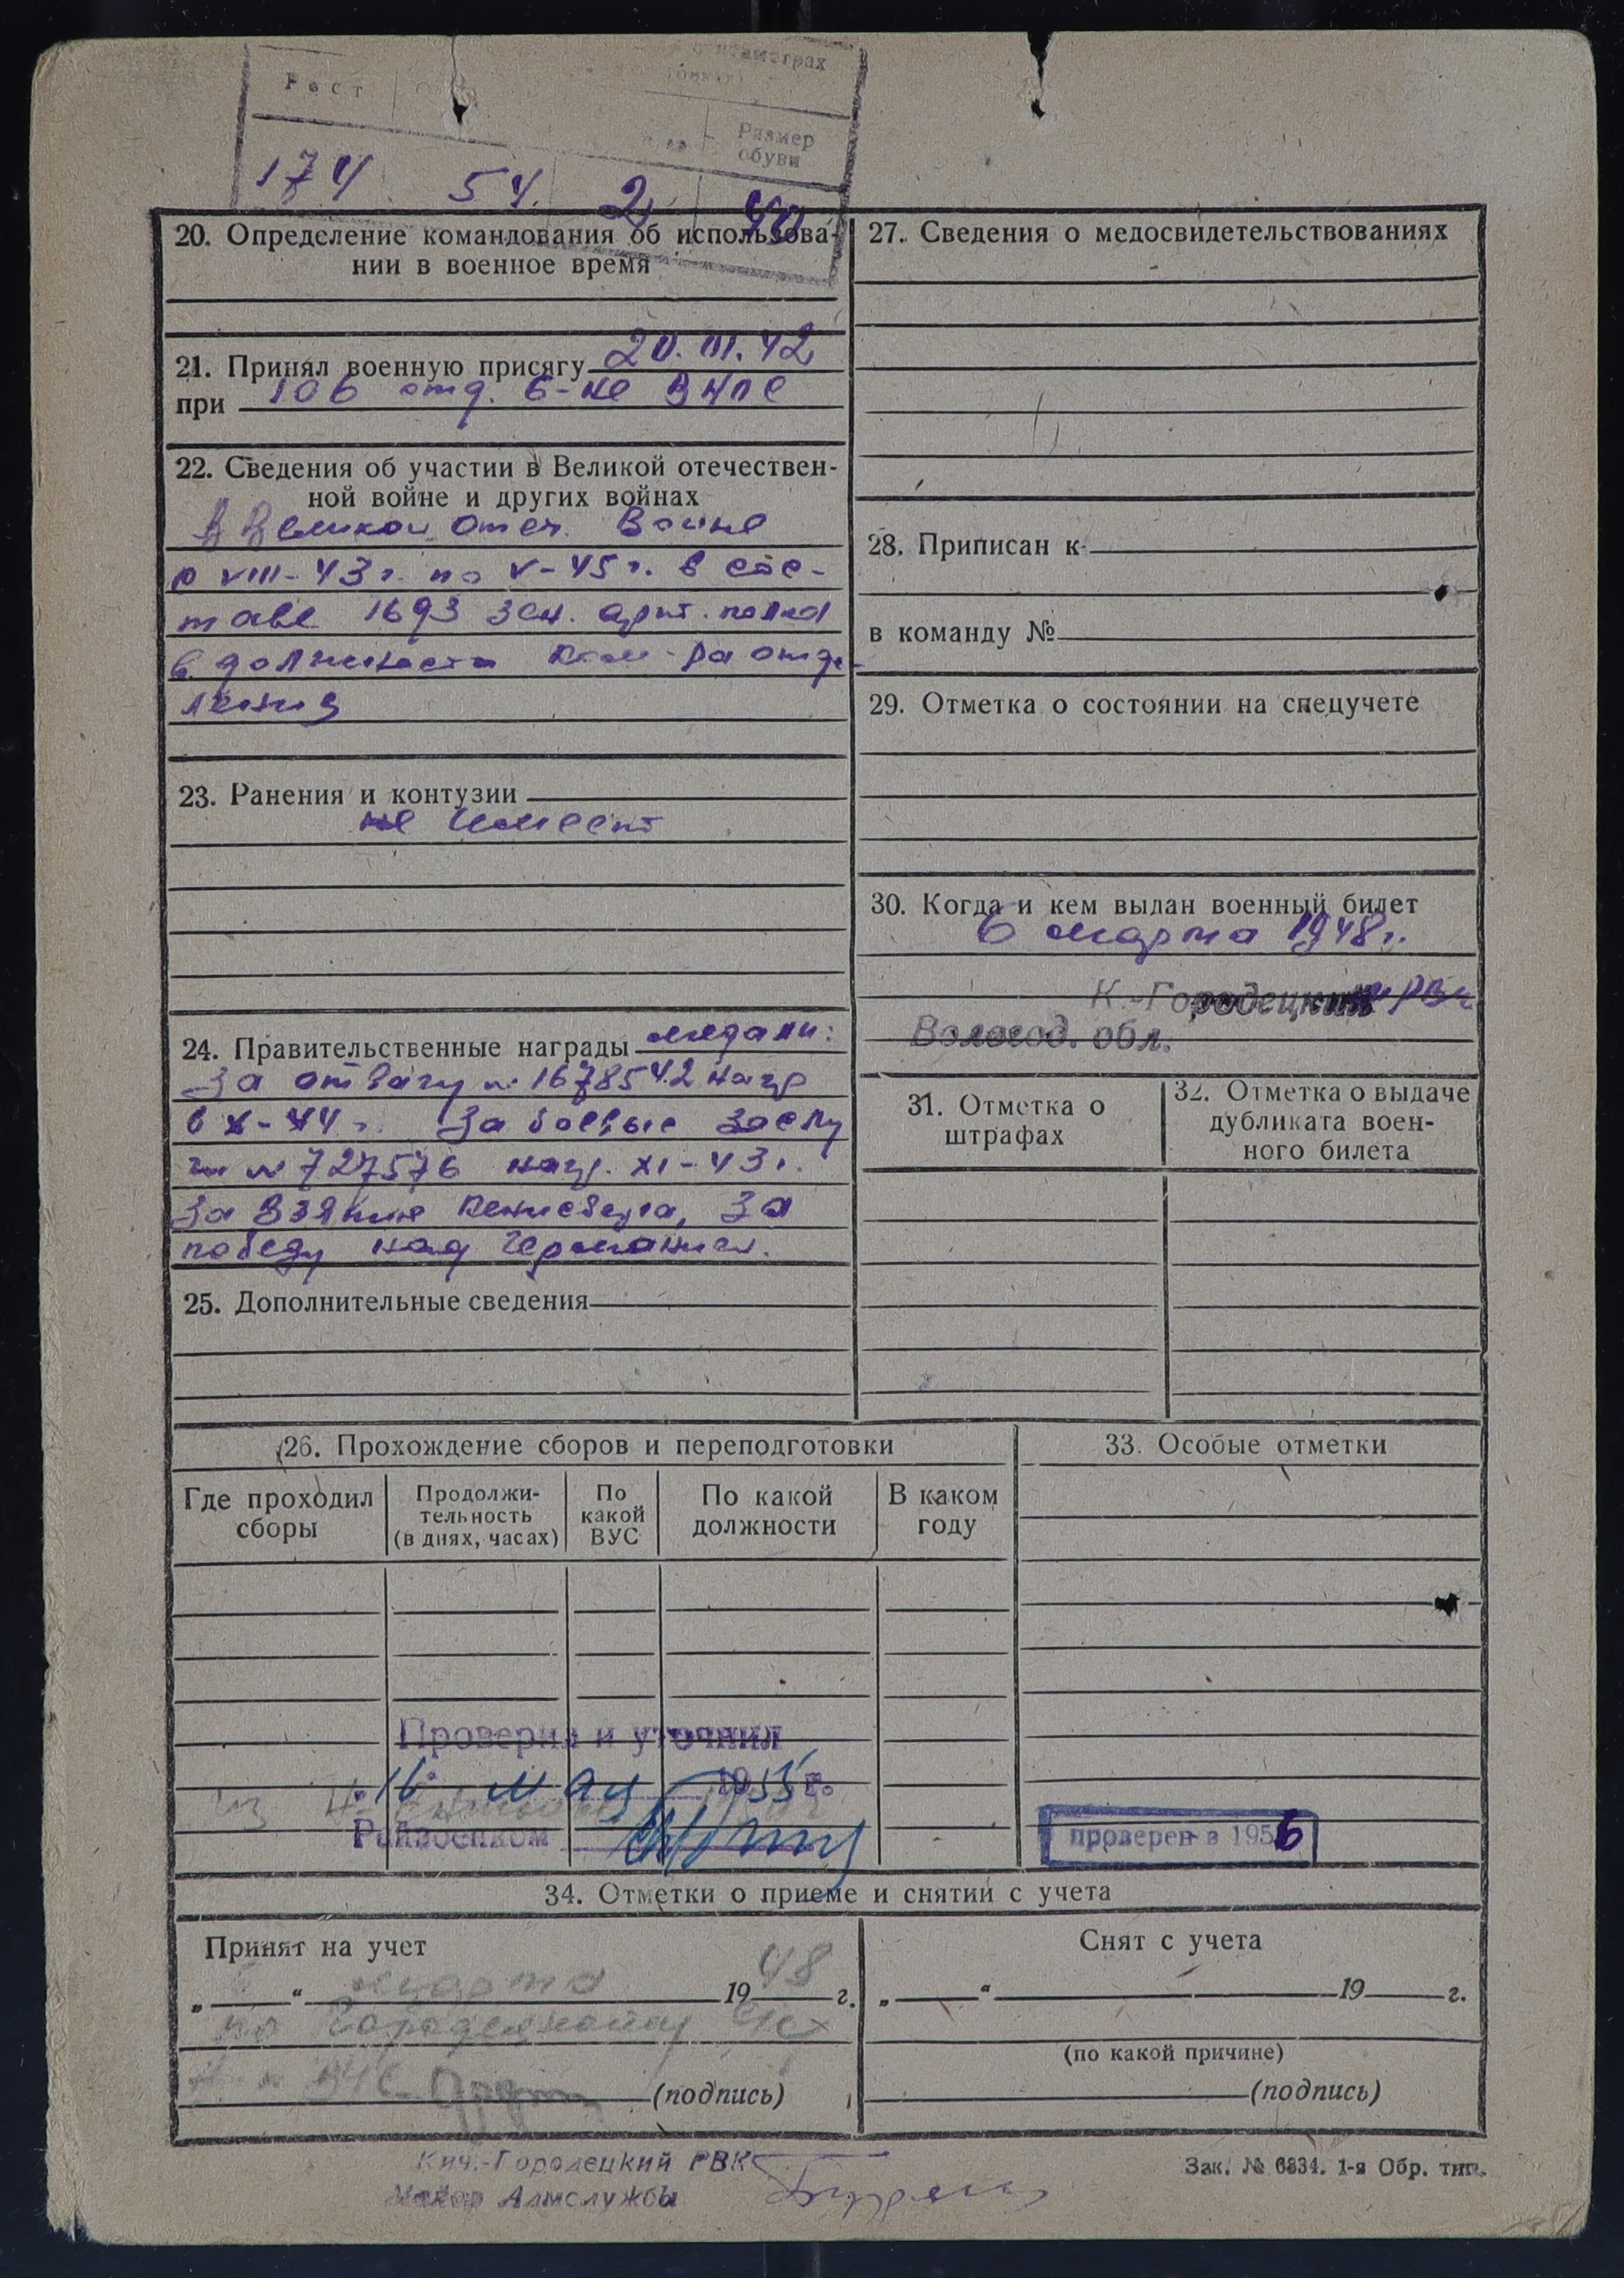 Рост
Размер
обуви
174 54. 2 40
20. Определение командования об использова-
нии в военное время
21. Принял военную присягу 20.III.42
при 106 отд. б-не ВНОС
22. Сведения об участии в Великой отечествен-
ной войне и других войнах
В Великой Отеч. Войне
с VIII-43 г. по V-45 г. в сос-
таве 1693 зен. арт. полка
в должности ком-ра отде-
ления
23. Ранения и контузии
не имеет
24. Правительственные награды медали:
За отвагу № 1678542 нагр
в X-44 г. За боевые заслу
ги № 727576 нагр. XI-43 г.
За взятие Кенисберга, За
победу над Германией.
25. Дополнительные сведения
27. Сведения о медосвидетельствованиях
28. Приписан к
в команду №
29. Отметка о состоянии на спецучете
30. Когда и кем выдан военный билет
6 марта 1948 г.
К.-Городецким РВК
Волегод. обл.
31. Отметка о
штрафах
32. Отметка о выдаче
дубликата воен-
ного билета
26. Прохождение сборов и переподготовки
Где проходил
сборы
Продолжи-
тельность
(в днях, часах)
По
какой
ВУС
По какой
должности
В каком
году
Проверил и уточнил
"16" мая 1955 г.
Райвоенком
33. Особые отметки
проверен в 1956
34. Отметки о приеме и снятии с учета
Принят на учет
„ “ марта 1948 г.
по Городецкому
(подпись)
Снят с учета
„ “ 19 г.
(по какой причине)
(подпись)
Кич.-Городецкий РВК
Майор Админслужбы
Зак. № 6834. 1-я Обр. тип.